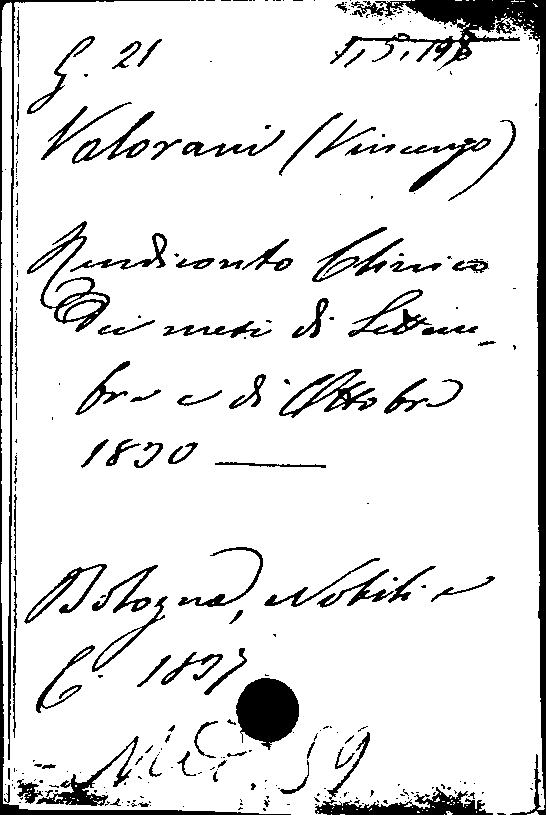 G. 21 1, 5, 198
Valorani (Vincenzo)
Rendiconto Clinico
dei mesi di Settem-
bre e di Ottobre
1830
Bologna, Nobili e
C. 1837
Med. 59